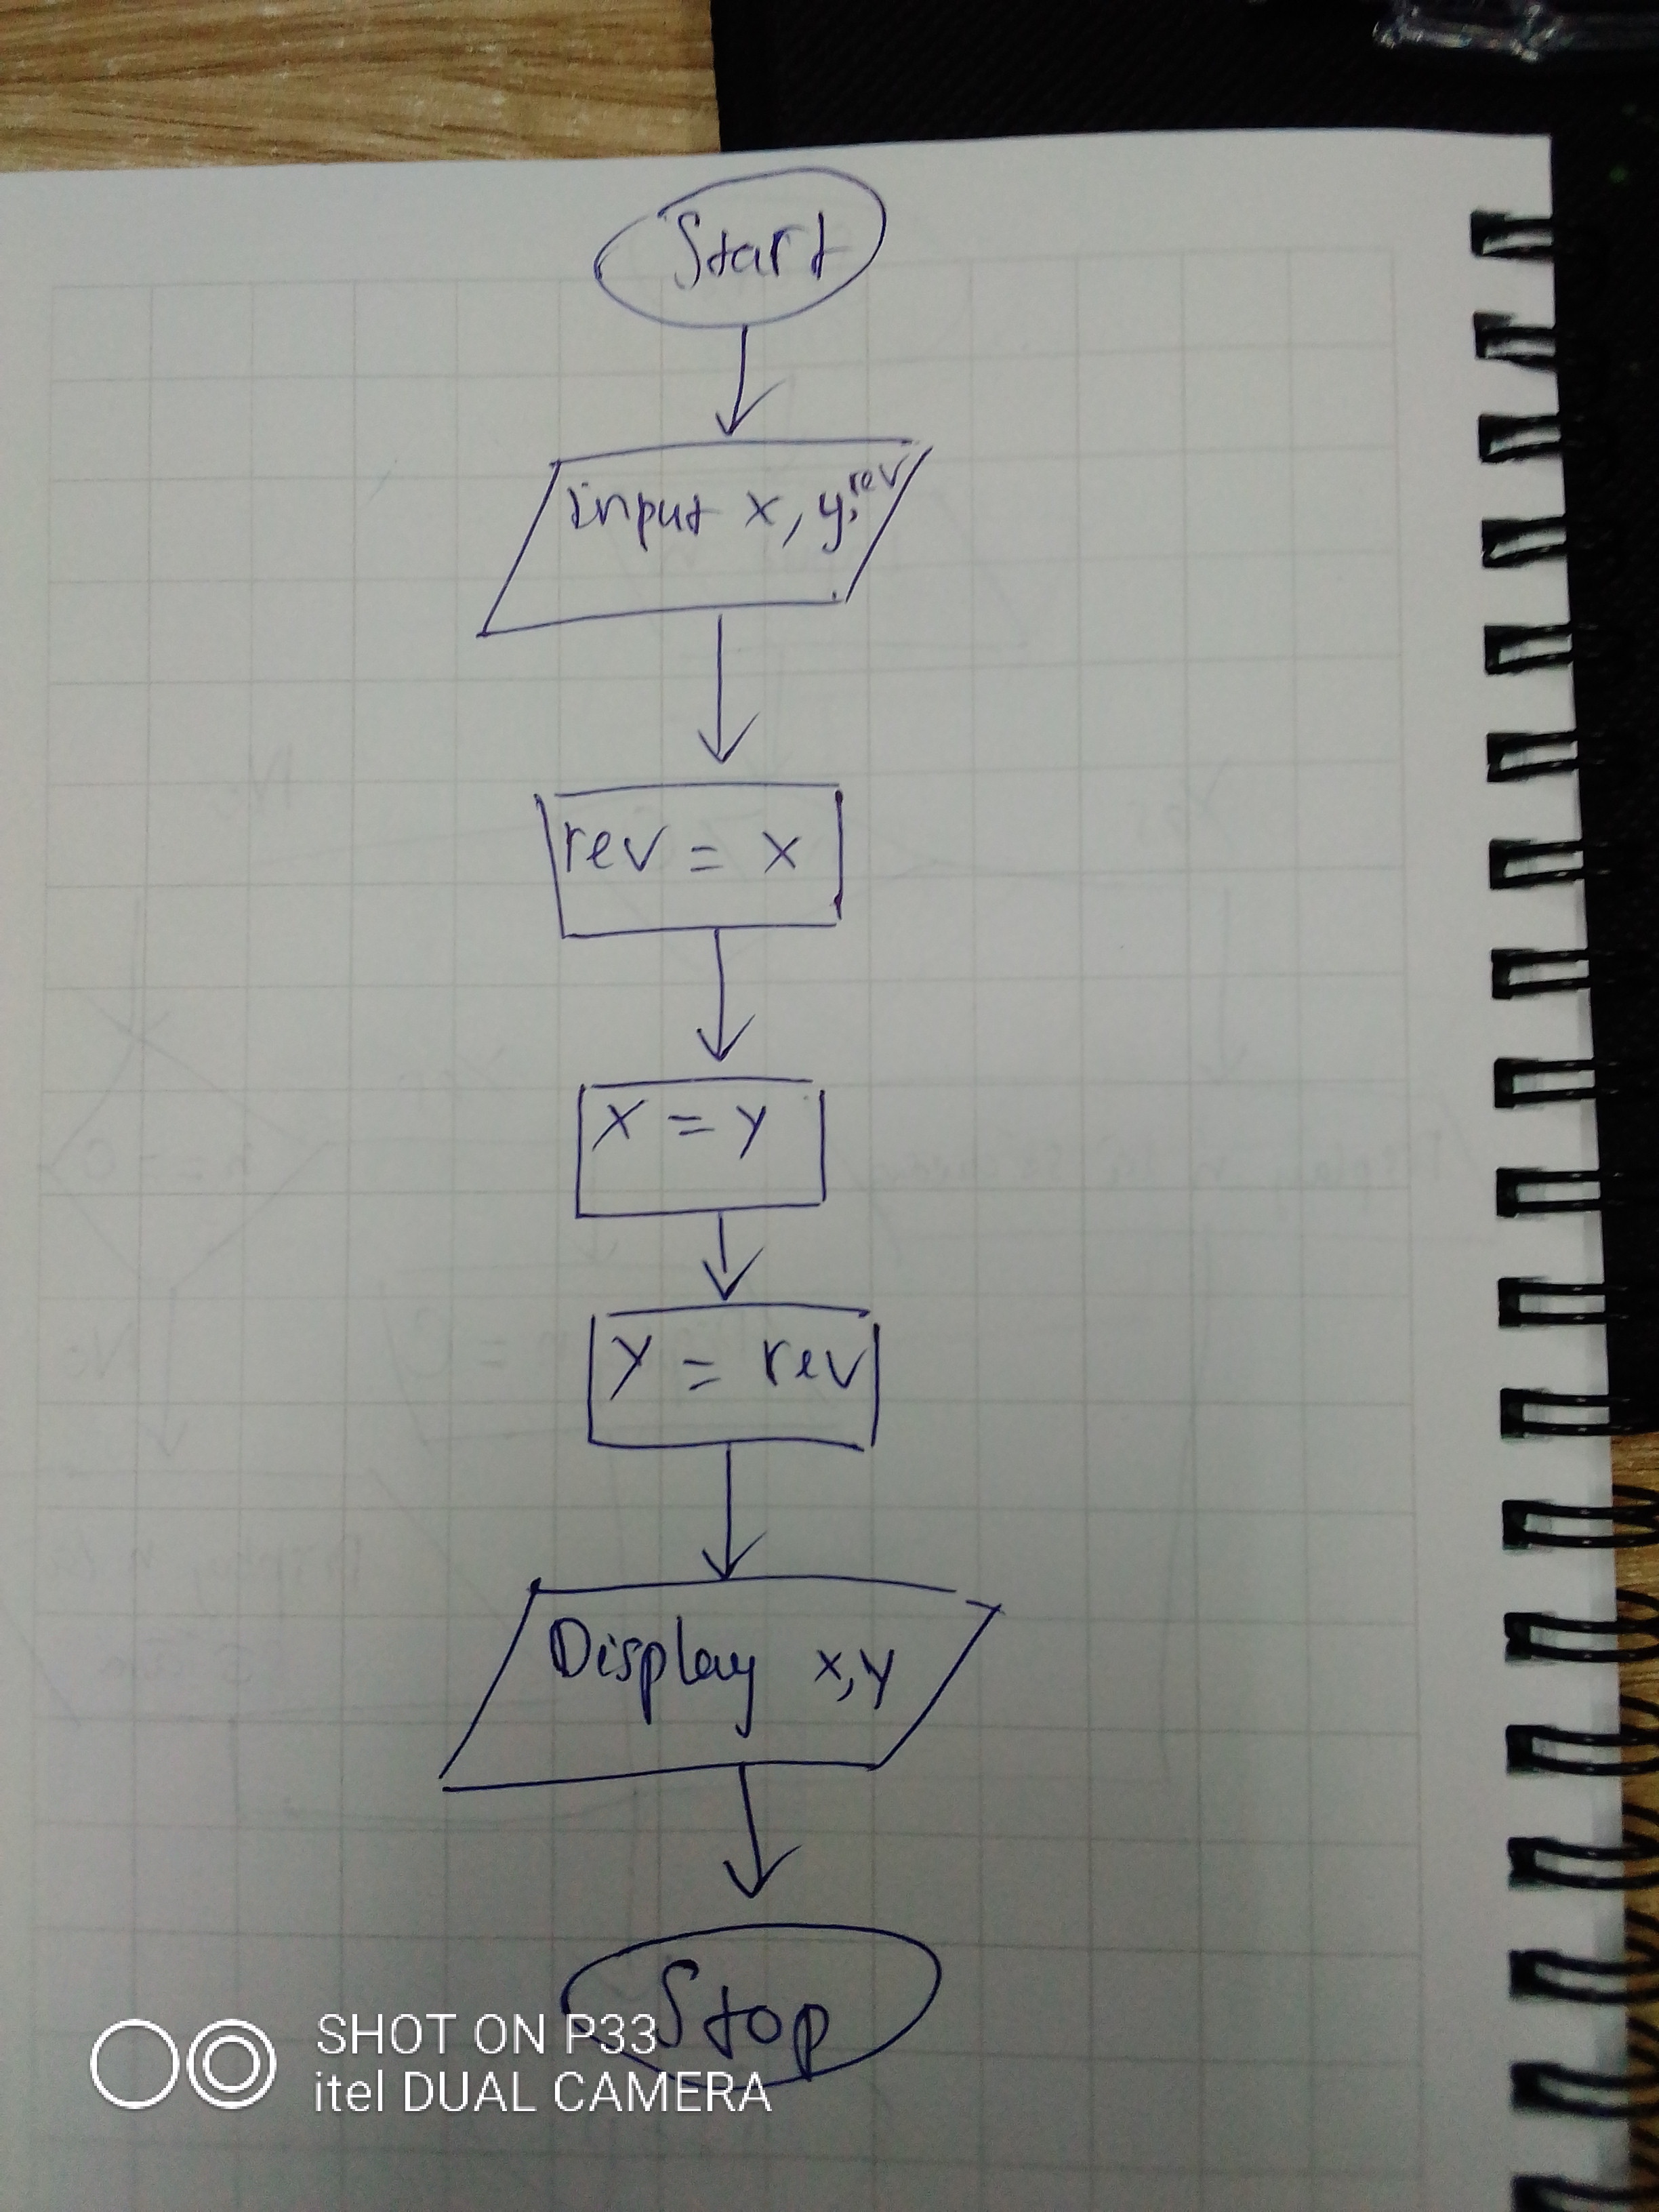 Start
input x, y, rev
rev = x
x = y
y = rev
Display x,y
Stop
SHOT ON P33
itel DUAL CAMERA